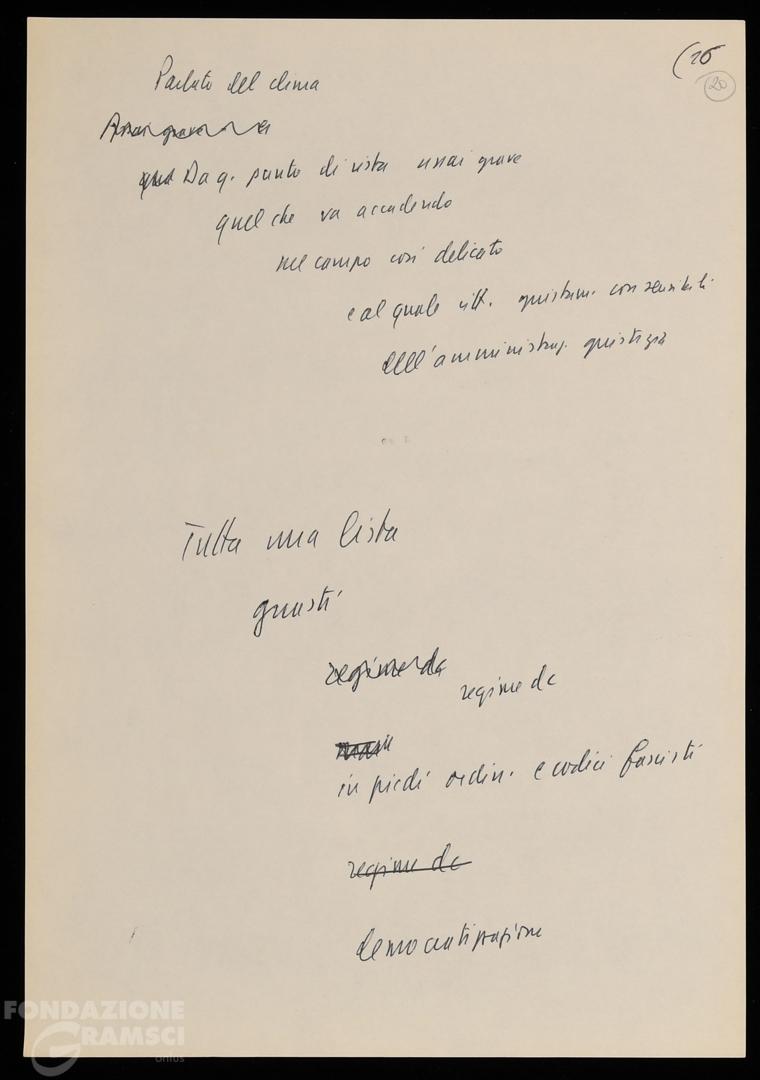 (16
20
Parlato del clima
Assai grave
Da q. punto di vista assai grave
quel che va accadendo
nel campo così delicato
e al quale citt. giustam. così sensibili
dell'amministraz. giustizia
Tutta una lista
guasti
regime dc
regime dc
in piedi ordin. e codici fascisti
regime dc
democratizzazione
FONDAZIONE
GRAMSCI
onlus